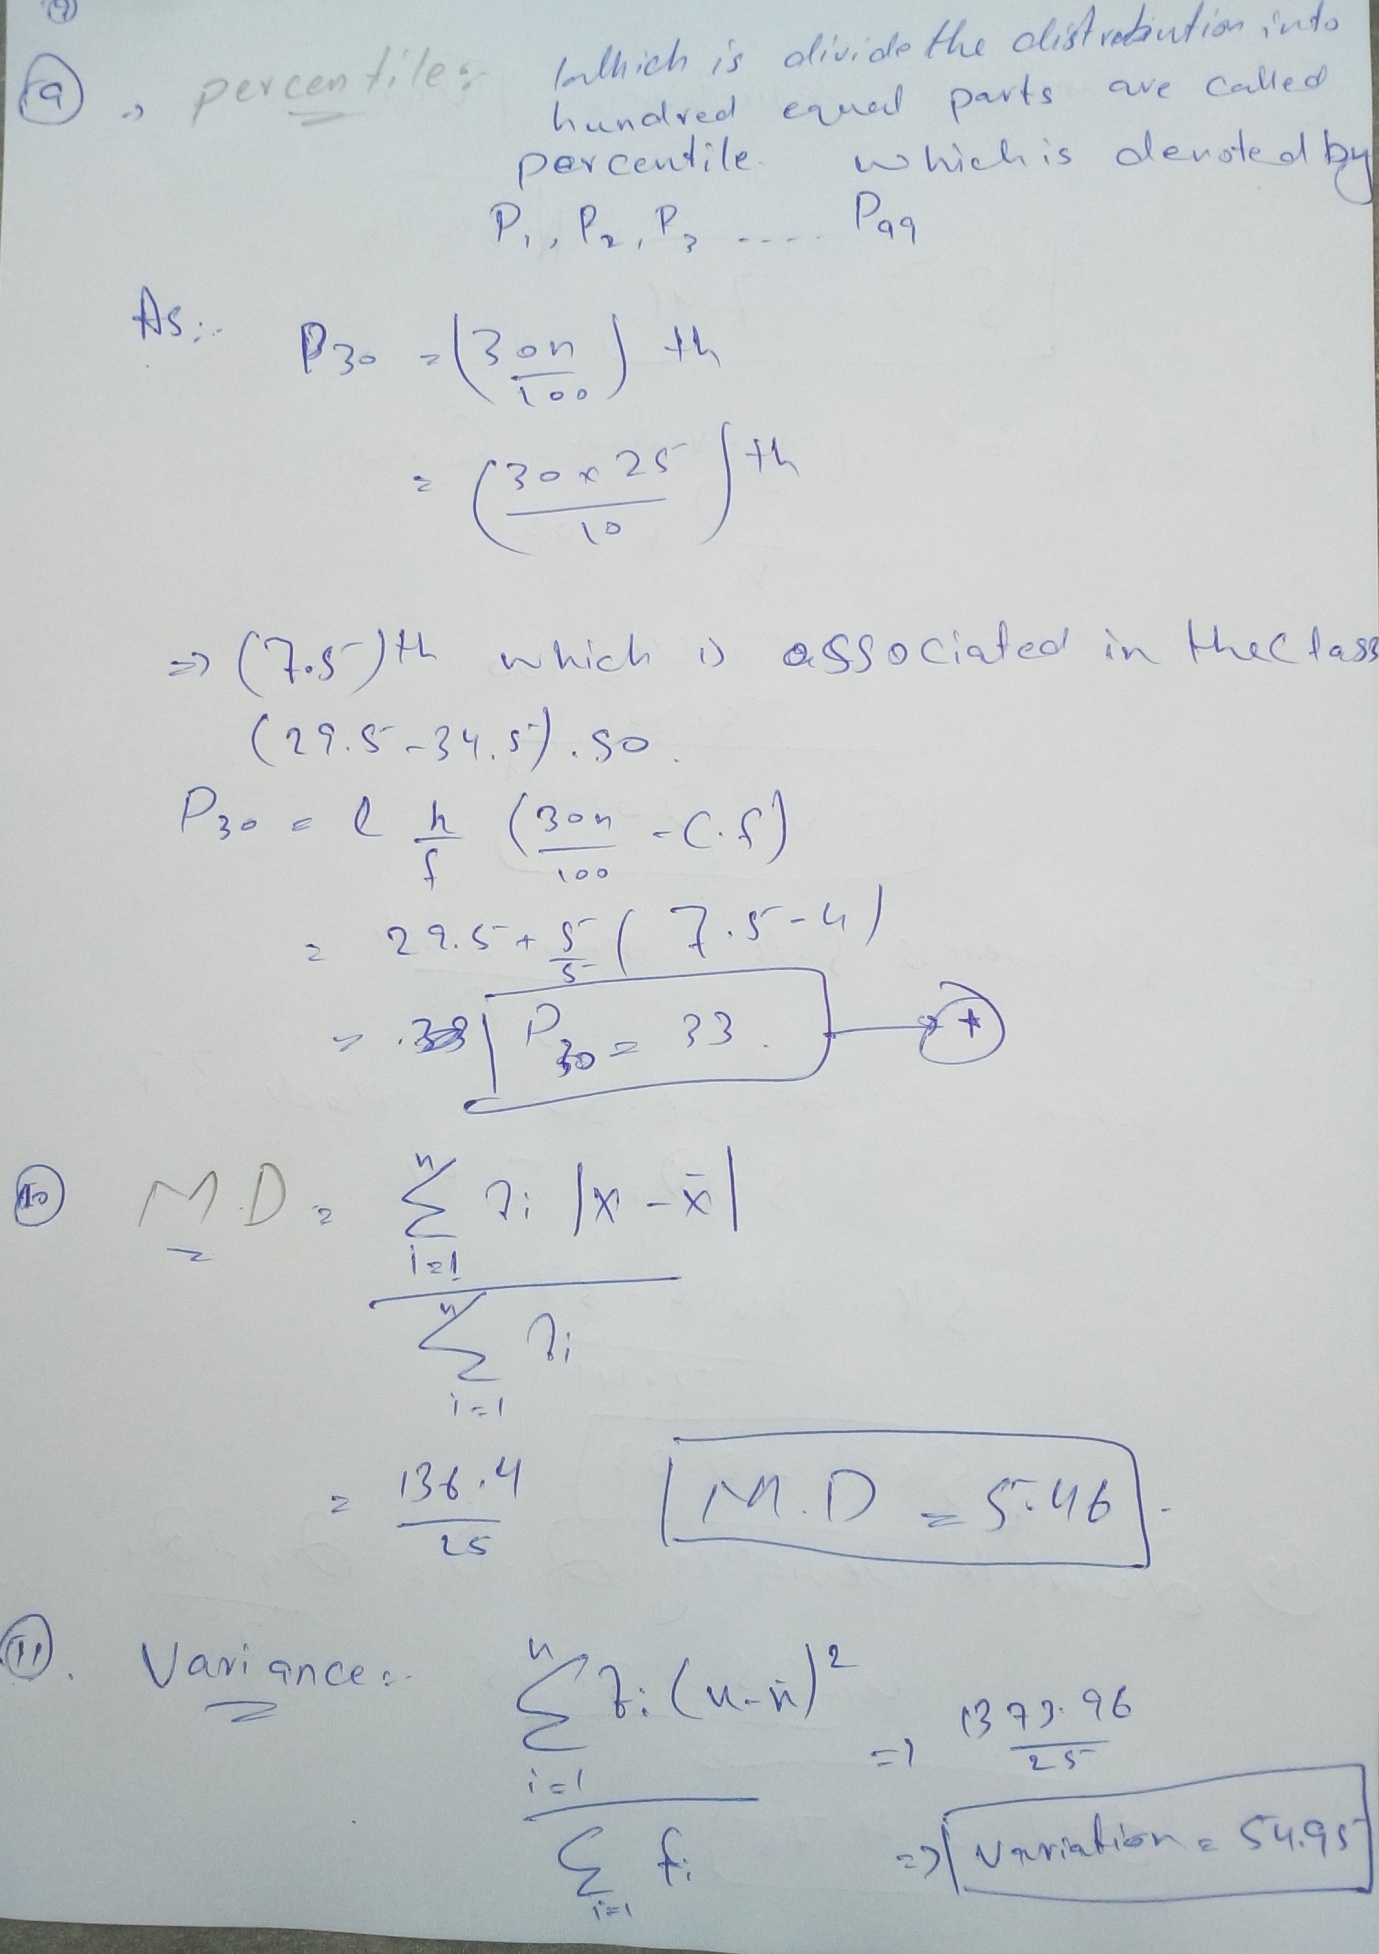 (9)
(9) → percentile:- Which is divide the distrebution into
hundred equal parts are called
percentile. which is denoted by
P₁, P₂, P₃ ..... P₉₉
As:-
P₃₀ = (30n/100) th
= (30 x 25/10) th
=> (7.5)th which is associated in the class
(29.5-34.5). so.
P₃₀ = l h/f (30n/100 - C.f)
= 29.5 + 5/5 (7.5-4)
= P₃₀ = 33. → *
(10) M.D = Σⁿᵢ₌₁ fi |x - x̄|
Σⁿᵢ₌₁ fi
= 136.4/25 M.D = 5.46.
(11). Variance:- Σⁿᵢ₌₁ fi (x-x̄)² => 1373.96/25
Σᵢ₌₁ fi => variation = 54.95